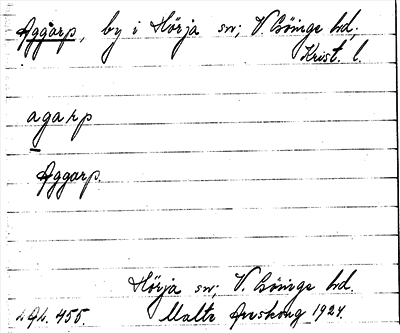 Aggarp, by i Hörja sn; V. Göinge hd,
Krist. l.
agarp
Aggarp.
Hörja sn; V. Göinge hd.
455. Malte Areskoug 1924.